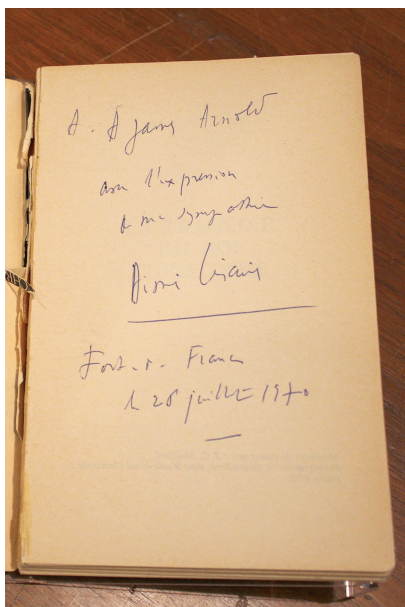 A. A James Arnold
avec l'expression
de ma sympathie
Aimé Césaire
Fort-de-France
le 28 juillet 1970